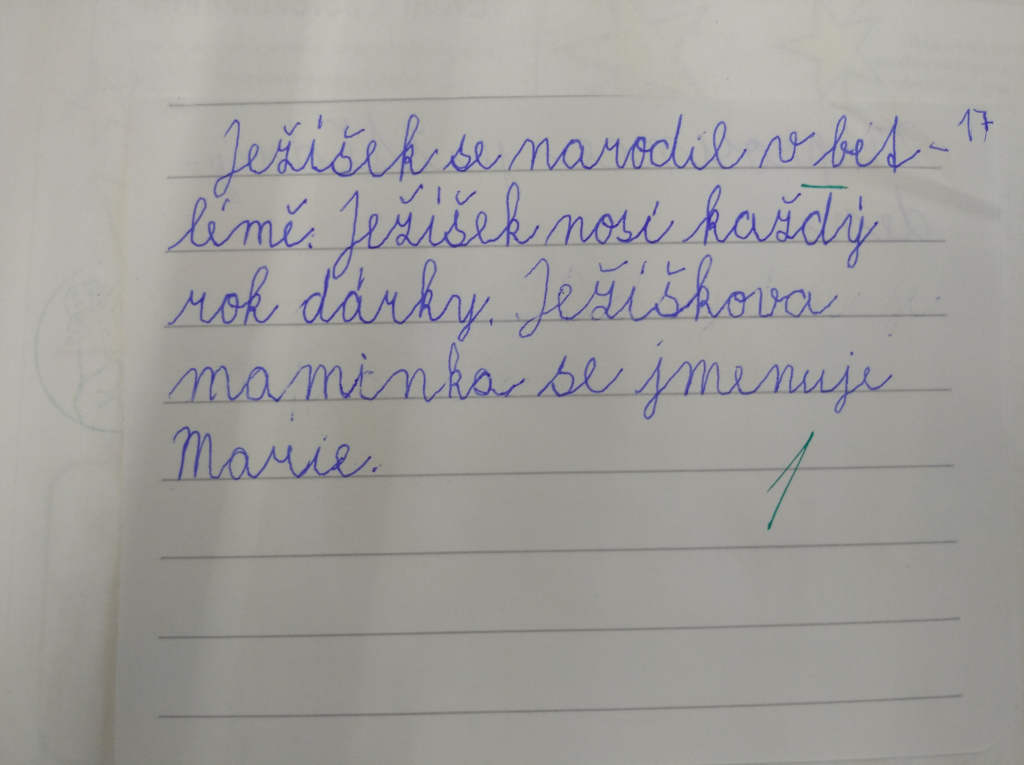 Ježíšek se narodil v bét- 17
lémě. Ježíšek nosí každý
rok dárky. Ježíškova
maminka se jmenuje
Marie.
1